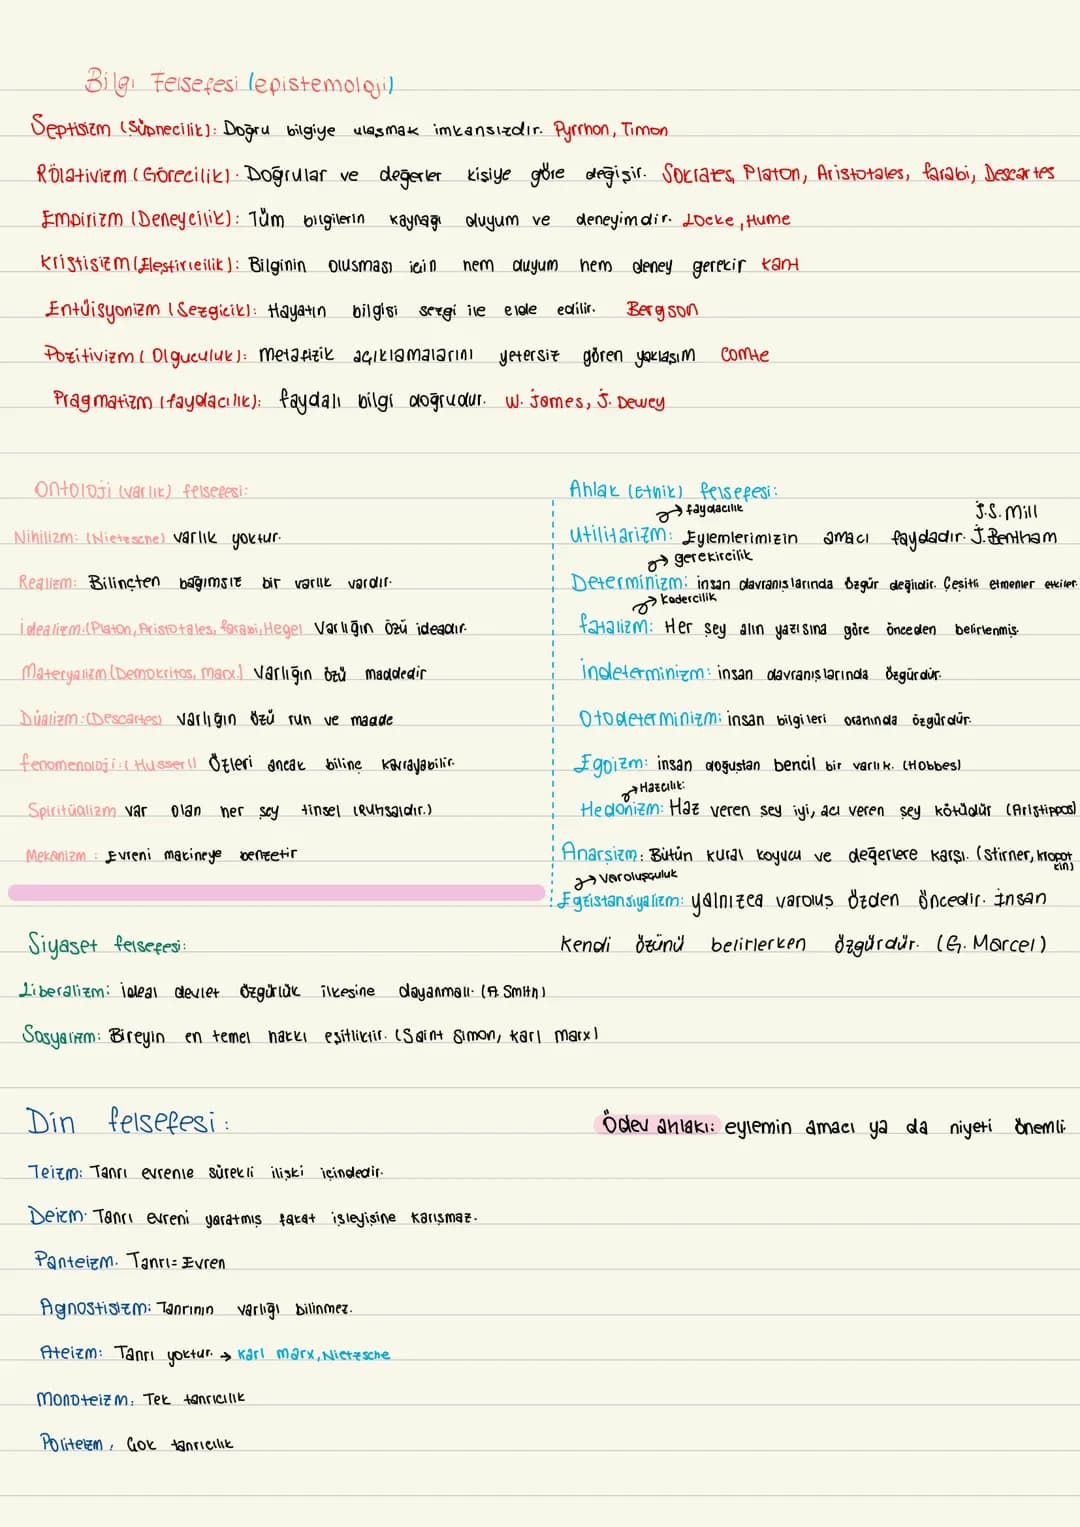 Bilgi Felsefesi (epistemoloji)
Septisizm (Şüphecilik): Doğru bilgiye ulaşmak imkansızdır. Pyrrhon, Timon
Rölativizm (Görecilik): Doğrular ve değerler kişiye göre değişir. Sokrates, Platon, Aristotales, farabi, Descartes
Empirizm (Deneycilik): Tüm bilgilerin kaynağı duyum ve deneyimdir. Locke, Hume
Kristisizm (Eleştiricilik): Bilginin oluşması için hem duyum hem deney gerekir Kant
Entüisyonizm (Sezgicik): Hayatın bilgisi sezgi ile elde edilir. Bergson
Pozitivizm (Olguculuk): Metafizik açıklamalarını yetersiz gören yaklaşım Comte
Pragmatizm (faydacılık): faydalı bilgi doğrudur. W. James, J. Dewey
Ontoloji (varlık) felsefesi:
Nihilizm: (Nietzsche) varlık yoktur.
Realizm: Bilinçten bağımsız bir varlık vardır.
idealizm: (Platon, Aristotales, farabi, Hegel Varlığın özü ideadır.
Materyalizm (Demokritos, Marx.) Varlığın özü maddedir
Düalizm: (Descartes) varlığın özü ruh ve madde
fenomenoloji: (Husserl) Özleri ancak bilinç kavrayabilir.
Spiritüalizm var olan her şey tinsel (Ruhsaldır.)
Mekanizm: Evreni makineye benzetir
Ahlak (Ethik) felsefesi:
→ faydacılık
J.S. Mill
Utilitarizm: Eylemlerimizin amacı faydadır. J. Bentham
→ gerekircilik
Determinizm: insan davranışlarında özgür değildir. Çeşitli etmenler etkiler.
→ Kadercilik
fatalizm: Her şey alın yazısına göre önceden belirlenmiş.
indeterminizm: insan davranışlarında özgürdür.
Otodeterminizm: insan bilgileri oranında özgürdür.
Egoizm: insan doğuştan bencil bir varlık. (Hobbes)
→ Hazcılık:
Hedonizm: Haz veren şey iyi, acı veren şey kötüdür (Aristippos)
Anarşizm: Bütün kural koyucu ve değerlere karşı. (Stirner, kropotkin)
→ Varoluşçuluk
Egzistansiyalizm: yalnızca varoluş özden öncedir. İnsan
kendi özünü belirlerken özgürdür. (G. Marcel)
Siyaset felsefesi:
Liberalizm: ideal devlet özgürlük ilkesine dayanmalı. (A. Smith)
Sosyalizm: Bireyin en temel hakkı eşitliktir. (Saint Simon, Karl Marx)
Din felsefesi:
Teizm: Tanrı evrenle sürekli ilişki içindedir.
Deizm. Tanrı evreni yaratmış fakat işleyişine karışmaz.
Panteizm. Tanrı = Evren
Agnostisizm: Tanrının varlığı bilinmez.
Ateizm: Tanrı yoktur. → Karl Marx, Nietzsche
Monoteizm: Tek tanrıcılık
Politeizm, Çok tanrıcılık
Ödev ahlakı: eylemin amacı ya da niyeti önemli.